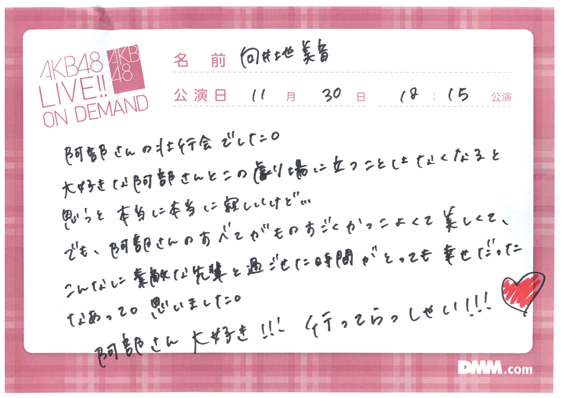 AKB48
LIVE!!
ON DEMAND
AKB
48
名前 向井地美音
公演日 11月30日 18:15公演
阿部さんの壮行会でした。
大好きな阿部さんとこの劇場に立つことはなくなると
思うと本当に本当に寂しいけど…
でも、阿部さんのすべてがものすごくかっこよくて美しくて、
こんなに素敵な先輩と過ごせた時間がとっても幸せだった
なあって。思いました。
阿部さん大好き!!! 行ってらっしゃい!!!
DMM.com